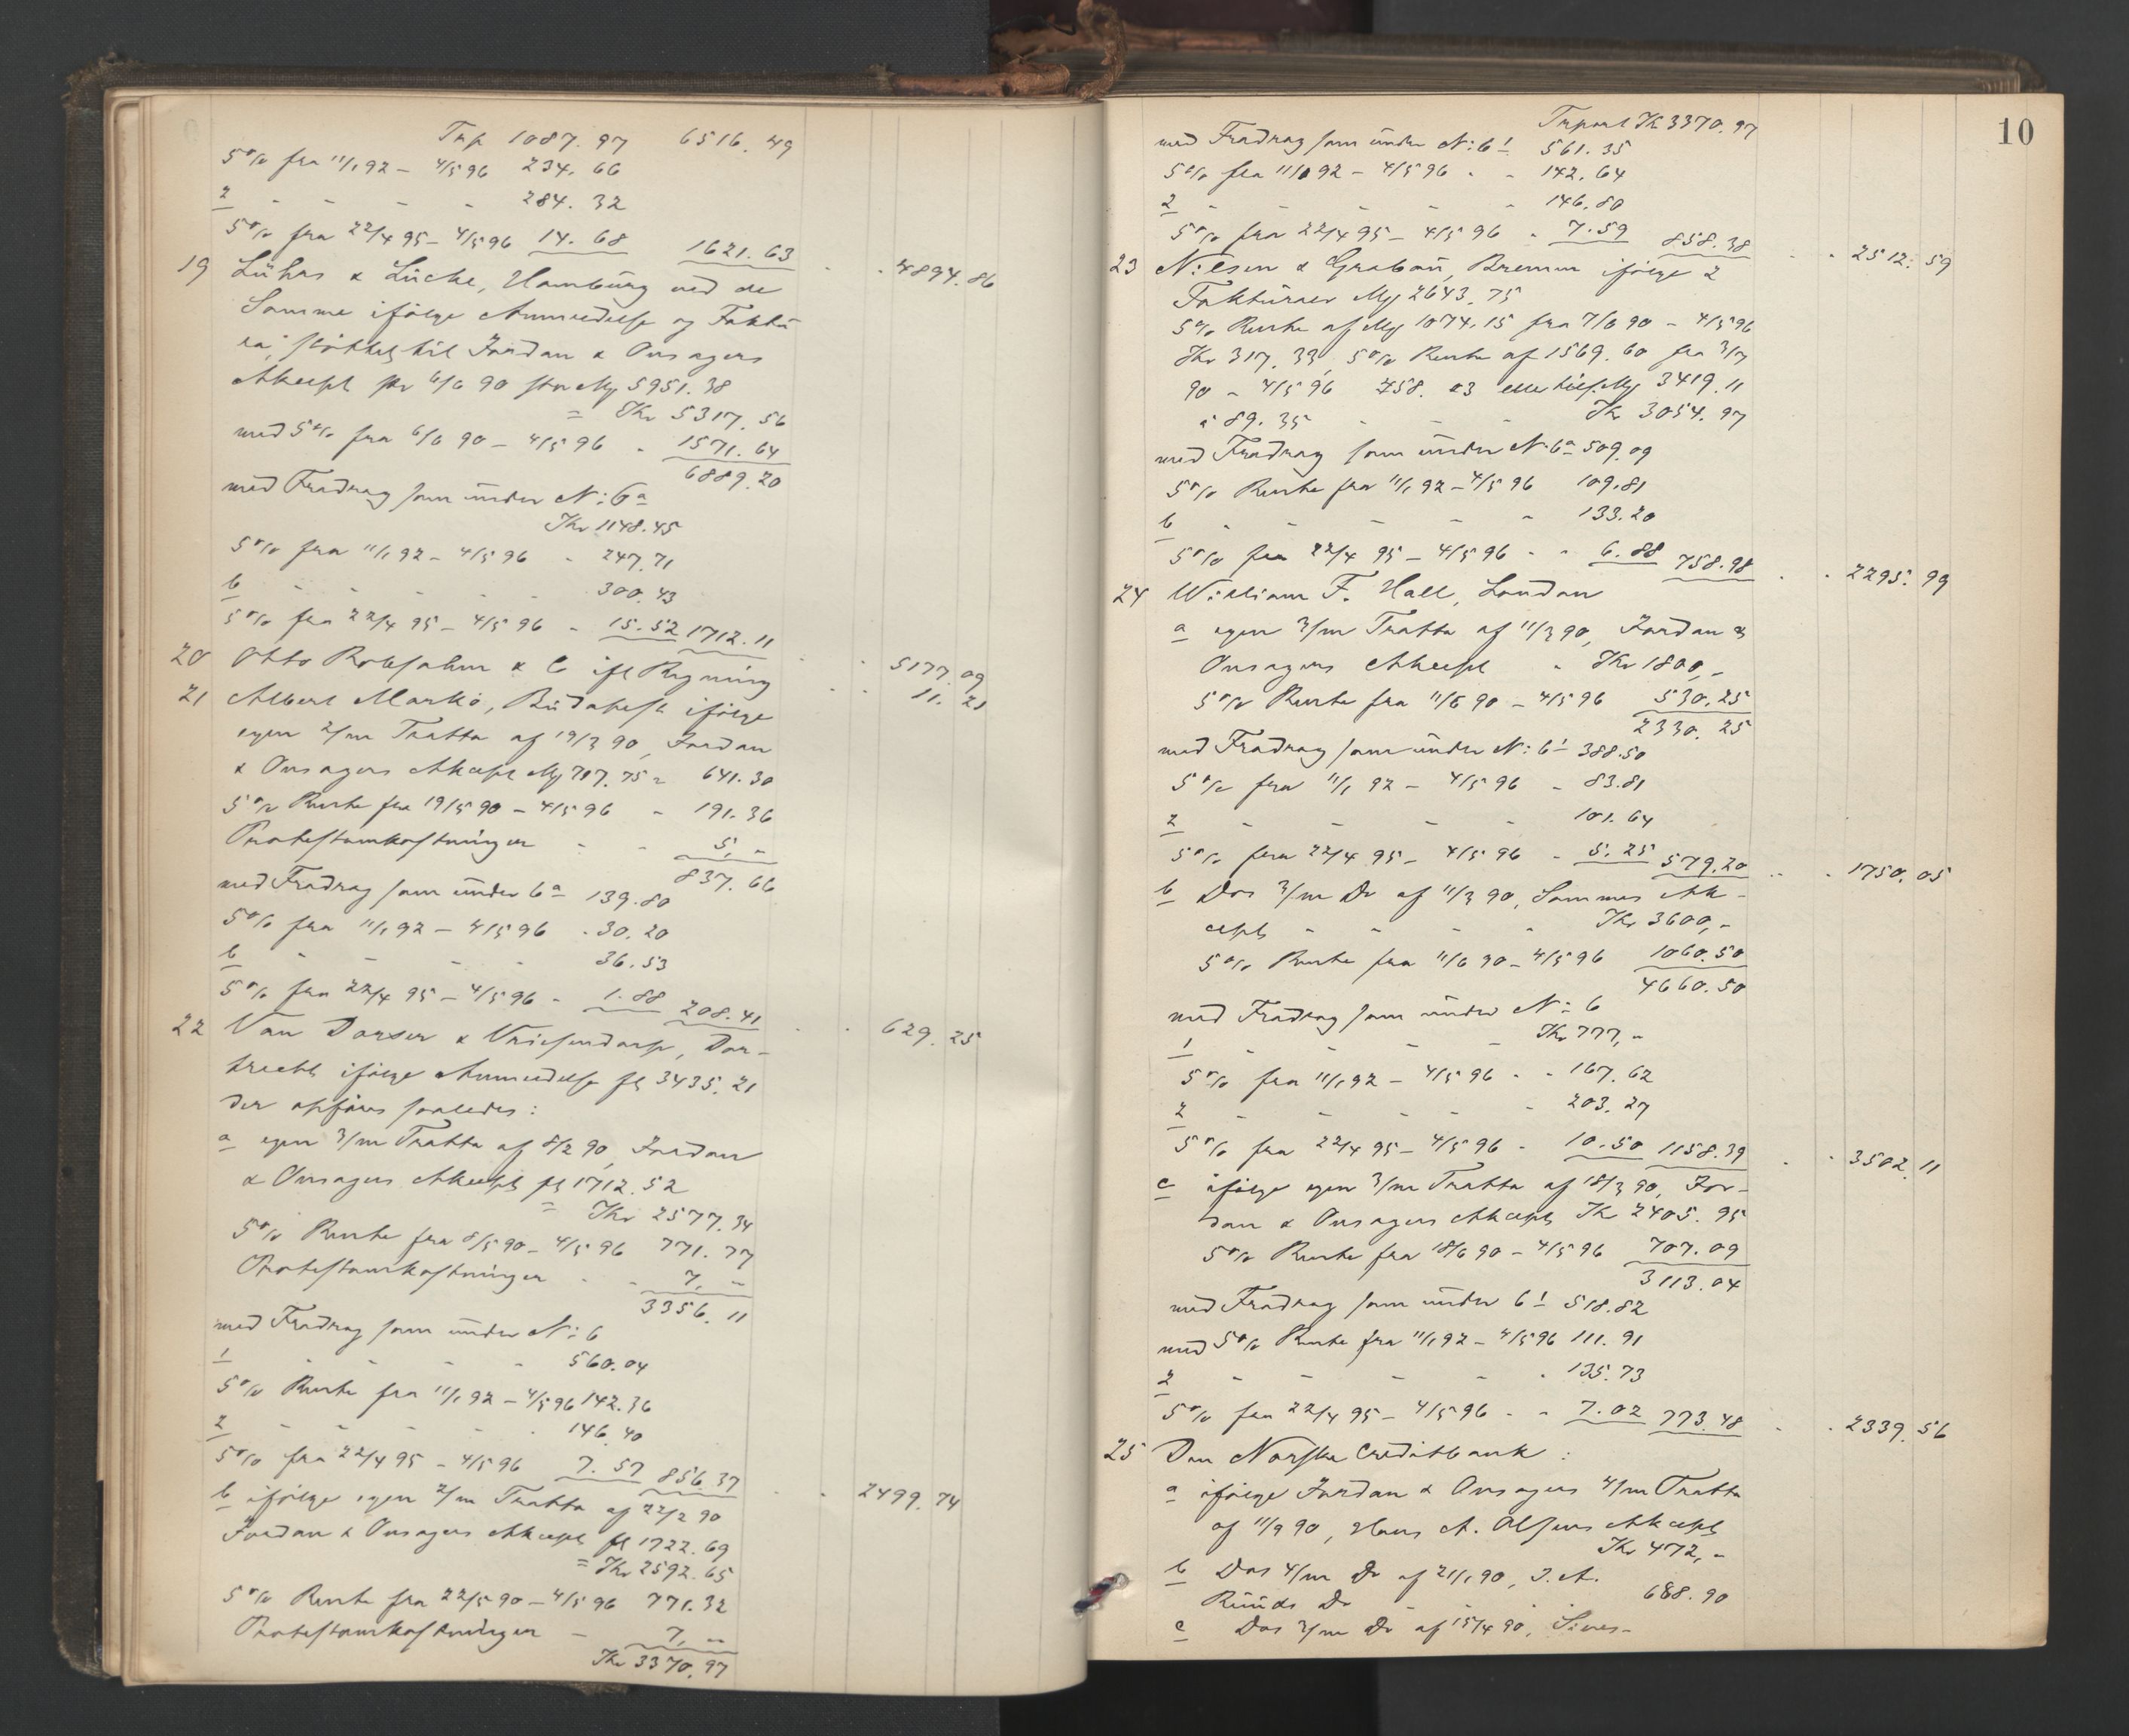 Trsp 1087.97 6516.49
5% fra 11/1 92 – 4/5 96 234.66
2 - - - - 284.32
5% fra 22/4 95 – 4/5 96 14.68 1621.63 - - 4894.86
19 Lühss & Lücke, Hamburg ved de
Samme ifølge Anmeldelse og Faktu-
ra, støttet til Jordan & Onsagers
Akcept pr 6/6 90 stor Mk 5951.38
= Kr 5317.56
med 5% fra 6/6 90 – 4/5 96 - 1571.64
6889.20
med Fradrag som under N: 6 a
Kr 1148.45
5% fra 11/1 92 – 4/5 96 - 247.71
b - - - - - 300.43
5% fra 22/4 95 – 4/5 96 - 15.52 1712.11 - - 5177.09
20 Otto Robsahm & C ifl Regning - - 11.21
21 Albert Markó, Budapest ifølge
egen 2/m Tratta af 19/3 90, Jordan
& Onsagers Akcept Mk 717.75 = 641.30
5% Rente fra 19/5 90 – 4/5 96 - 191.36
Protestomkostninger - - 5,-
837.66
med Fradrag som under 6 a 139.80
5% fra 11/1 92 – 4/5 96 - 30.20
b - - - - 36.53
5% fra 22/4 95 – 4/5 96 - 1.88 208.41 - - 629.25
22 Van Dorsser & Vriesendorp, Dor-
trecht ifølge Anmeldelse fl 3435.21
der opføres saaledes:
a egen 3/m Tratta af 8/2 90, Jordan
& Onsagers Akcept fl 1712.52
= Kr 2577.34
5% Rente fra 8/5 90 – 4/5 96 771.77
Protestomkostninger - - 7,-
3356.11
med Fradrag som under N: 6
1 - - - - 560.04
5% Rente fra 11/1 92 – 4/5 96 142.36
2 - - - - - 146.40
5% fra 22/4 95 – 4/5 96 7.57 856.37 - - 2499.74
b ifølge egen 3/m Tratta af 22/2 90
Jordan & Onsagers Akcept fl 1722.69
= Kr 2592.65
5% Rente fra 22/5 90 – 4/5 96 771.32
Protestomkostninger - 7,-
Kr 3370.97
10
Trsport Kr 3370.97
med Fradrag som under N: 6 1 561.35
5% fra 11/1 92 – 4/5 96 - - 142.64
2 - - - - - 146.80
5% fra 22/4 95 – 4/5 96 - 7.59 858.38 - - 2512.59
23 Nilsen & Grabau, Bremen ifølge 2
Fakturaer Mk 2643.75
5% Rente af Mk 1074.15 fra 7/6 90 – 4/5 96
Kr 317.33, 5% Rente af 1569.60 fra 3/7
90 – 4/5 96 458.03 eller tils. Mk 3419.11
à 89.35 - - - Kr 3054.97
med Fradrag som under N: 6 a 509.09
5% Rente fra 11/1 92 – 4/5 96 109.81
b - - - - - 133.20
5% fra 22/4 95 – 4/5 96 - - 6.88 758.98 - - 2295.99
24 William F. Hall, London
a egen 3/m Tratta af 11/3 90, Jordan &
Onsagers Akcept - Kr 1800,-
5% Rente fra 11/6 90 – 4/5 96 530.25
2330.25
med Fradrag som under N: 6 1 388.50
5% fra 11/1 92 – 4/5 96 - 83.81
2 - - - - - 101.64
5% fra 22/4 95 – 4/5 96 - 5.25 579.20 - - 1750.05
b Dos 3/m Do af 11/3 90, Sammes Ak-
cept - - - - Kr 3600,-
5% Rente fra 11/6 90 – 4/5 96 1060.50
4660.50
med Fradrag som under N: 6
1 - - - - Kr 777,-
5% fra 11/1 92 – 4/5 96 - - 167.62
2 - - - - - 203.27
5% fra 22/4 95 – 4/5 96 - 10.50 1158.39 - - 3502.11
c ifølge egen 3/m Tratta af 18/3 90, Jor-
dan & Onsagers Akcept Kr 2405.95
5% Rente fra 18/6 90 – 4/5 96 707.09
3113.04
med Fradrag som under 6 1 518.82
med 5% Rente fra 11/1 92 – 4/5 96 111.91
2 - - - - - 135.73
5% fra 22/4 95 – 4/5 96 - - 7.02 773.48 - - 2339.56
25 Den Norske Creditbank:
a ifølge Jordan & Onsagers 4/m Tratta
af 11/9 90, Hans A. Olsens Akcept
Kr 472,-
b Dos 4/m Do af 21/1 90, I. A.
Runds Do - - - 688.90
c Dos 3/m Do af 15/4 90,